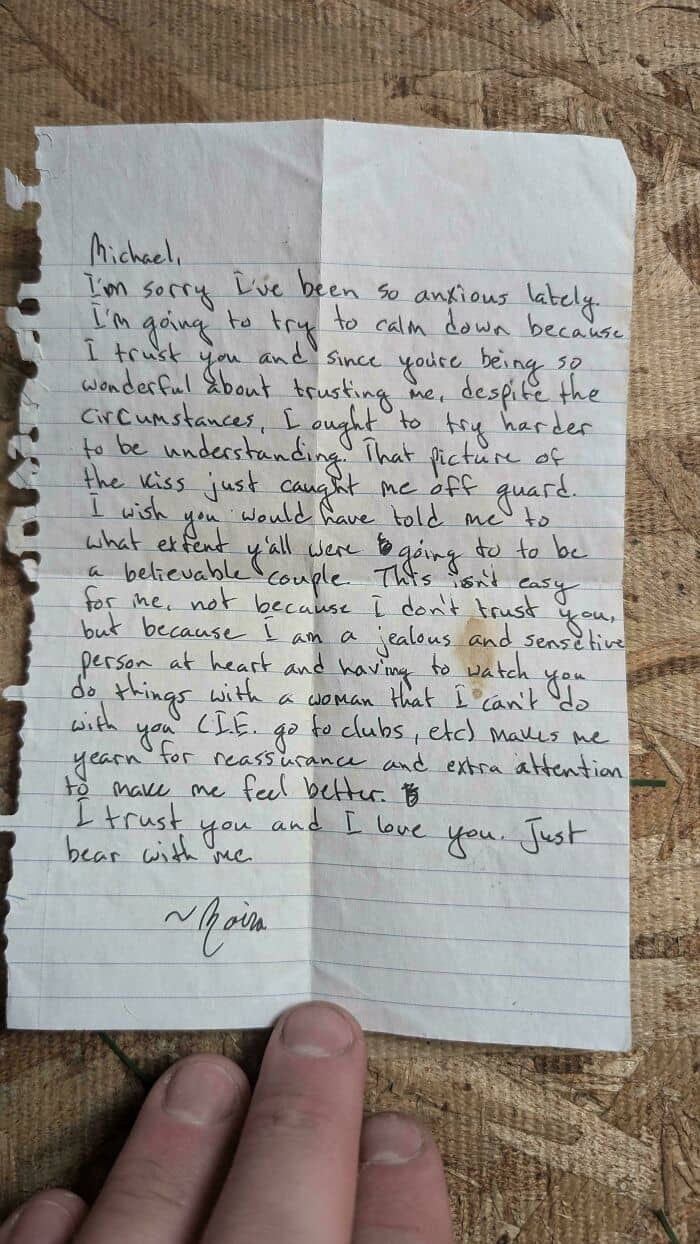 Michael,
I'm sorry I've been so anxious lately.
I'm going to try to calm down because
I trust you and since you're being so
wonderful about trusting me, despite the
circumstances, I ought to try harder
to be understanding. That picture of
the kiss just caught me off guard.
I wish you would have told me to
what extent y'all were going to to be
a believable couple. This isn't easy
for me, not because I don't trust you,
but because I am a jealous and sensetive
person at heart and having to watch you
do things with a woman that I can't do
with you (I.E. go to clubs, etc) makes me
yearn for reassurance and extra attention
to make me feel better.
I trust you and I love you. Just
bear with me.